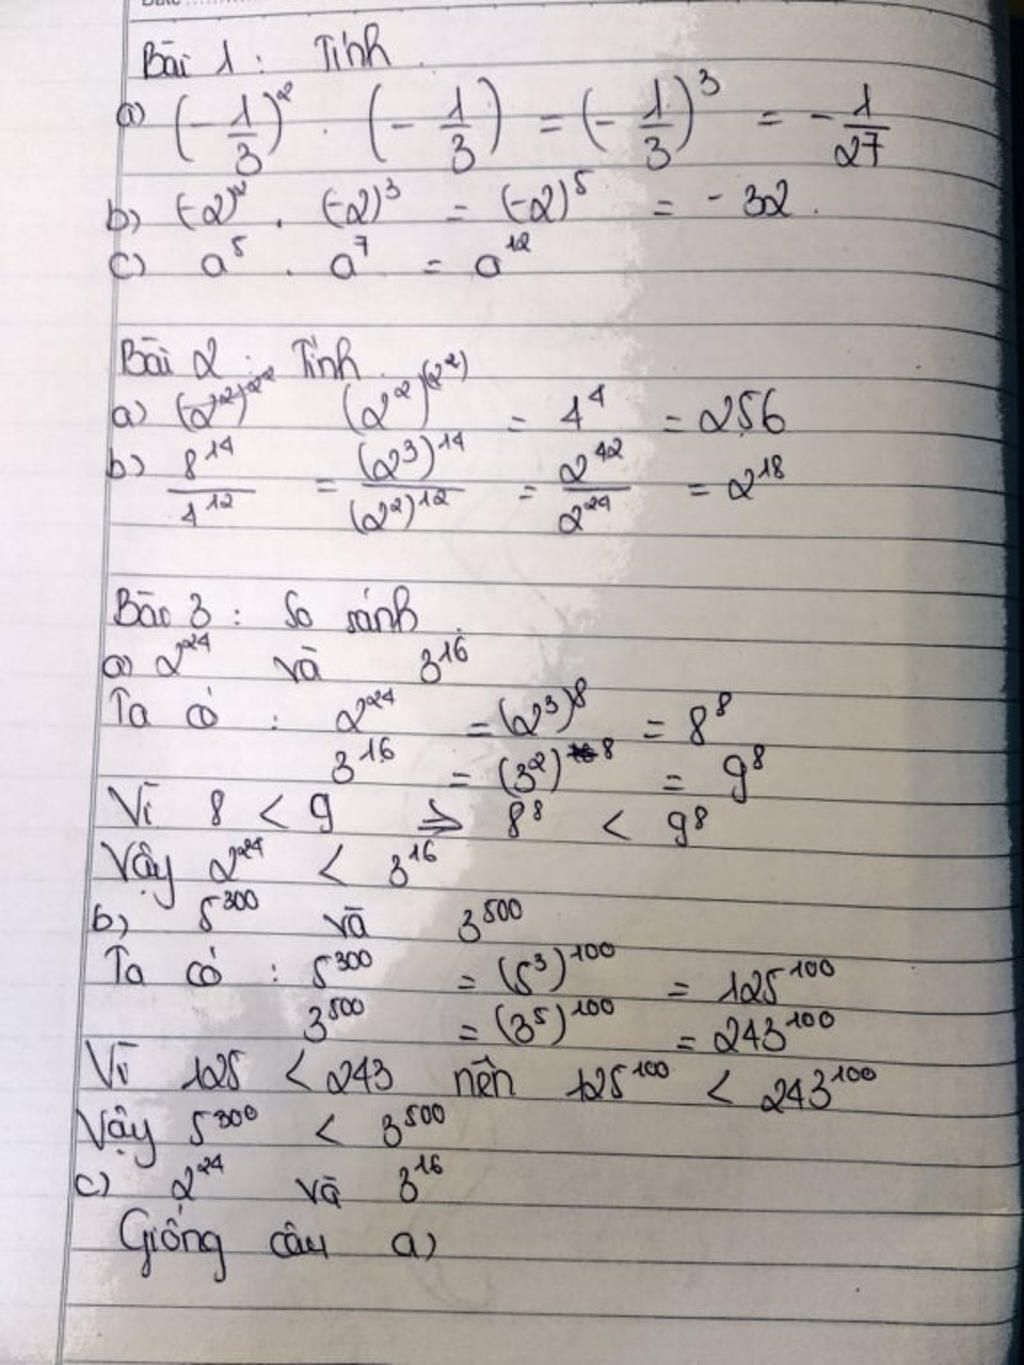 Bài 1 : Tính.
a) (-1/3)² . (-1/3) = (-1/3)³ = -1/27
b) (-2)² . (-2)³ = (-2)⁵ = -32.
c) a⁵ . a⁷ = a¹²
Bài 2 : Tính.
a) (2²)^(2²) = 4⁴ = 256
b) 8¹⁴/4¹² = (2³)¹⁴/(2²)¹² = 2⁴²/2²⁴ = 2¹⁸
Bài 3 : So sánh.
a) 2²⁴ và 3¹⁶
Ta có : 2²⁴ = (2³)⁸ = 8⁸
3¹⁶ = (3²)⁸ = 9⁸
Vì 8 < 9 => 8⁸ < 9⁸
Vậy 2²⁴ < 3¹⁶
b) 5³⁰⁰ và 3⁵⁰⁰
Ta có : 5³⁰⁰ = (5³)¹⁰⁰ = 125¹⁰⁰
3⁵⁰⁰ = (3⁵)¹⁰⁰ = 243¹⁰⁰
Vì 125 < 243 nên 125¹⁰⁰ < 243¹⁰⁰
Vậy 5³⁰⁰ < 3⁵⁰⁰
c) 2²⁴ và 3¹⁶
Giống câu a)